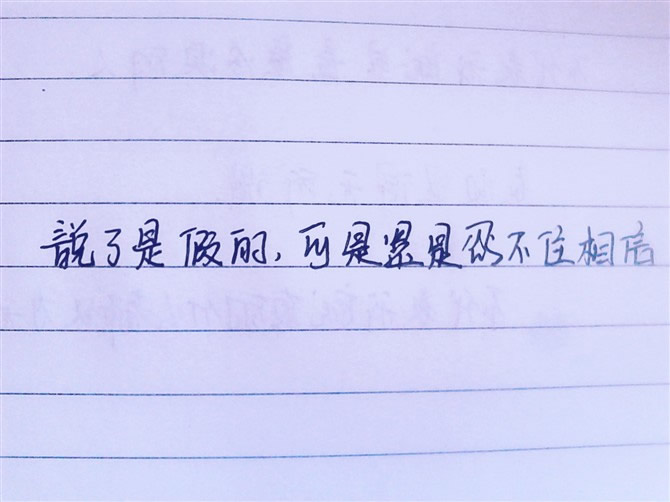 說了是假的，可是紧是忍不住相信